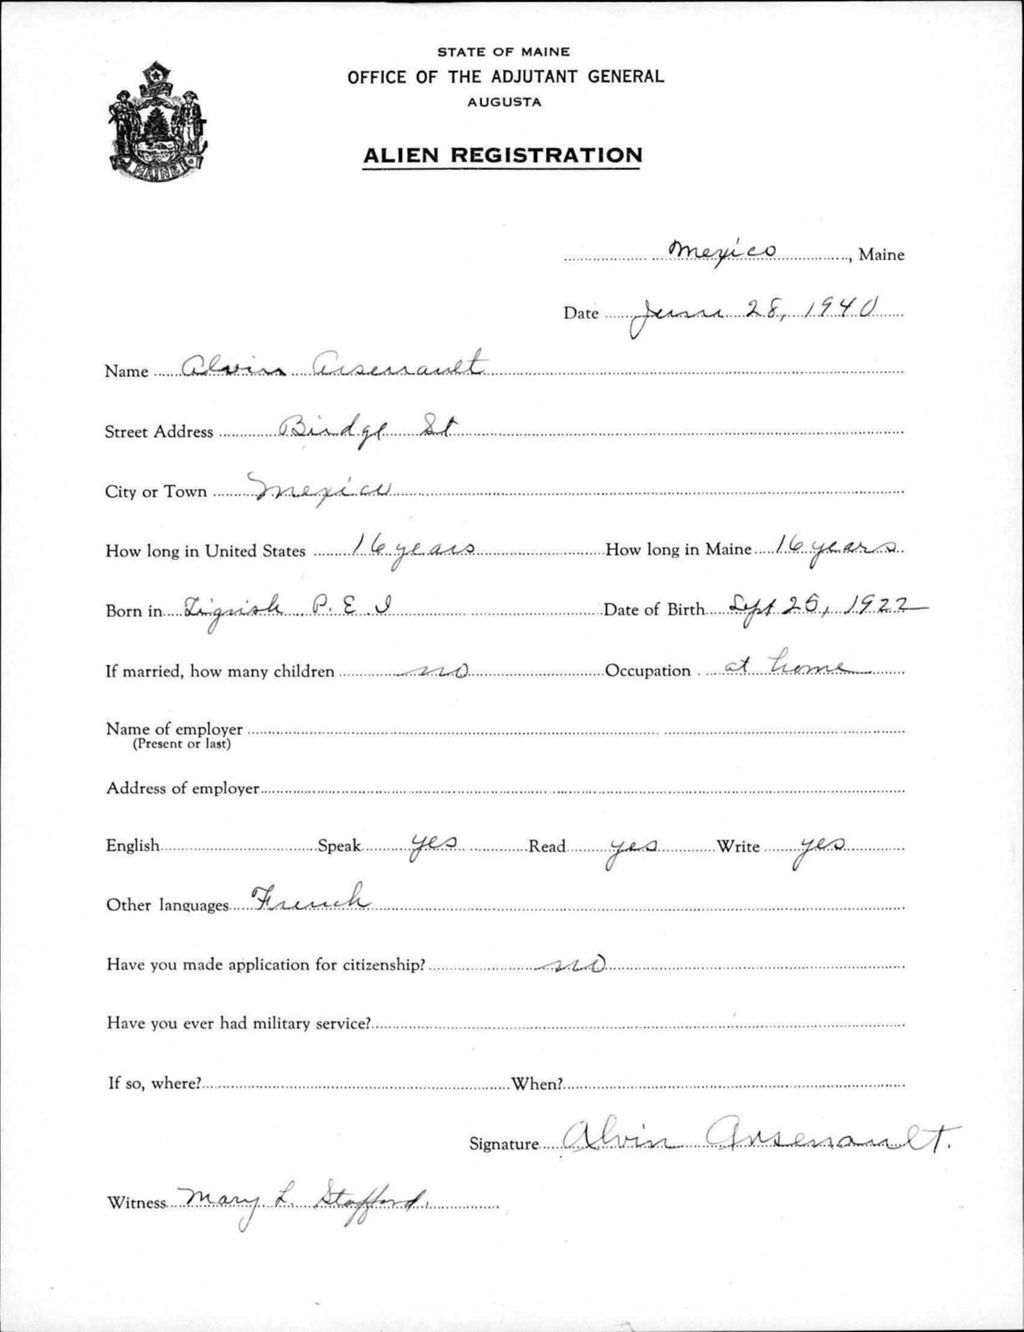 STATE OF MAINE
OFFICE OF THE ADJUTANT GENERAL
AUGUSTA
ALIEN REGISTRATION
MAINE
Mexico, Maine
Date June 28, 1940
Name Alvin Arsenault
Street Address Birdge St
City or Town Mexico
How long in United States 16 years How long in Maine 16 years
Born in Tignish P. E I Date of Birth Sept 25, 1922
If married, how many children no Occupation at home
Name of employer
(Present or last)
Address of employer
English Speak yes Read yes Write yes
Other languages French
Have you made application for citizenship? no
Have you ever had military service?
If so, where? When?
Signature Alvin Arsenault.
Witness Mary L. Stafford